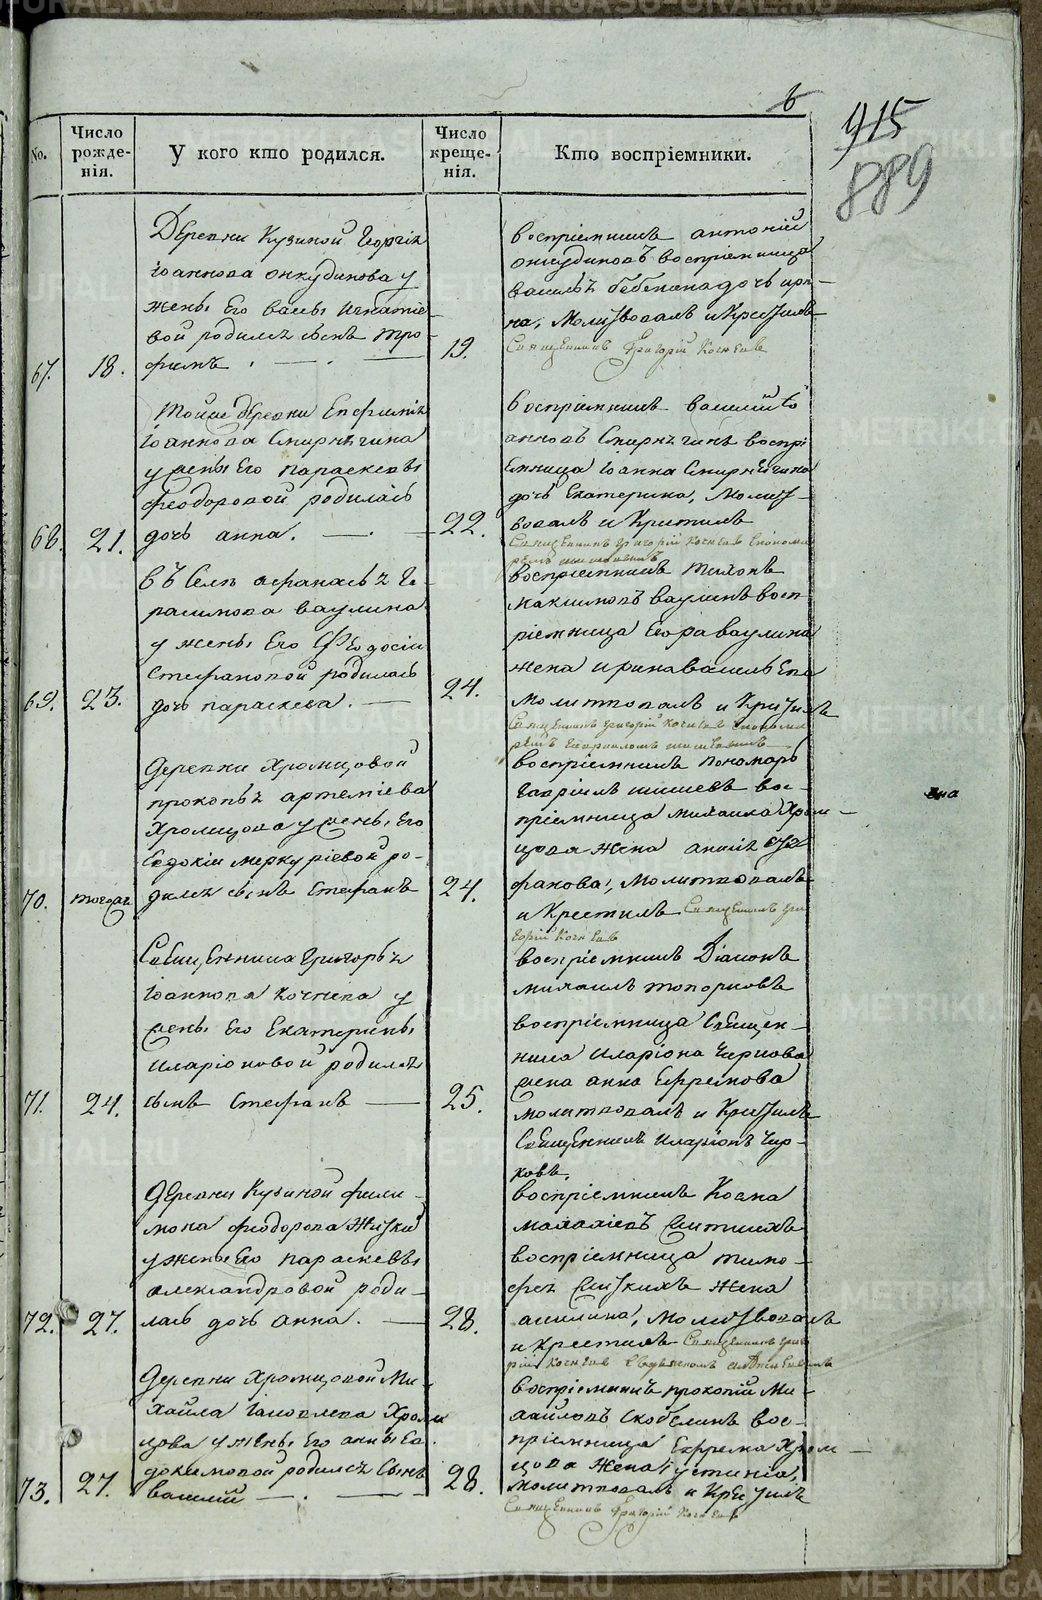 6
915
889
No.
Число рожденія.
У кого кто родился.
Число крещенія.
Кто воспріемники.
Деревни Кузиной Георгія
Іоаннова Онкудинова у
жены Его
вой родилсѧ сынъ Тро-
67. 18. фимъ
19.
воспріемникъ Антоній
Онкудиновъ воспріемница
дочь Ири-
на, Молитвовалъ и Крестилъ
Священникъ Григорій Кочневъ
Тойже деревни
Іоаннова
у жены Его Параскевы
Феодоровой родилась
68. 21. дочь Анна.
22.
воспріемникъ Василій Іо
анновъ воспрі
емница Іоанна
дочь Екатерина, Молит-
вовалъ и Крестилъ
Священникъ Григорій Кочневъ
Въ Селѣ Афанасья Ге-
расимова Ваулина
у жены Его Феодосіи
Стефановой родилась
69. 23. дочь Параскева.
24.
воспріемникъ Тихонъ
Максимовъ Ваулинъ восп
ріемница Егора Ваулина
жена Ирина
Молитвовалъ и Крестилъ
Священникъ Григорій Кочневъ
Деревни Хромцовой
Прокопья Артеміева
Хромцова у жены Его
Евдокіи Меркуріевой ро-
70. тогоже дилсѧ сынъ Стефанъ
24.
воспріемникъ Пономарь
Гавріилъ Шишевъ вос-
пріемница Михаила Хром-
цова жена
фанова, Молитвовалъ
и Крестилъ Священникъ Гри-
горій Кочневъ
на
Священника Григорья
Іоаннова Кочнева у
жены Его Екатерины
Иларіоновой родилсѧ
71. 24. сынъ Стефанъ
25.
воспріемникъ Діаконъ
Михаилъ Топорковъ
воспріемница Священ-
ника Иларіона Чиркова
жена Анна Ефремова
Молитвовалъ и Крестилъ
Священникъ Иларіонъ Чир-
ковъ.
Деревни Кузиной Фили-
мона Феодорова
у жены Его Параскевы
Александровой роди-
72. 27. лась дочь Анна.
28.
воспріемникъ
воспріемница Тимо-
фея жена
Акилина, Молитвовалъ
и Крестилъ Священникъ Григо
рій Кочневъ
Деревни Хромцовой Ми-
хайла Іаковлева Хром
цова у жены Его Анны Ев
докимовой родилсѧ Сынъ
73. 27. Василій
28.
воспріемникъ Прокопій Ми-
хайловъ Скобелинъ вос-
пріемница Ефрема Хром-
цова жена Устинія,
Молитвовалъ и Крестилъ
Священникъ Григорій Кочневъ
METRIKI.GASO-URAL.RU